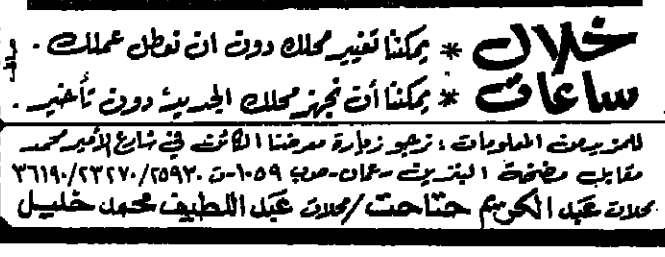 خلال ساعات
* يمكننا تغيير محلك دون ان نعطل عملك .
* يمكننا أن نجهز محلك الجديد دون تأخير .
للمزيد من المعلومات ، نرجو زيارة معرضنا الكائن في شارع الأمير محمد
مقابل مضخة البنزين - عمان - ص.ب ١٠٥٩ - ت ٢٥٩٣٠/٢٣٢٧٠/٣٦١٩٠
محلات عبد الكريم حتاحت / محلات عبد اللطيف محمد خليل